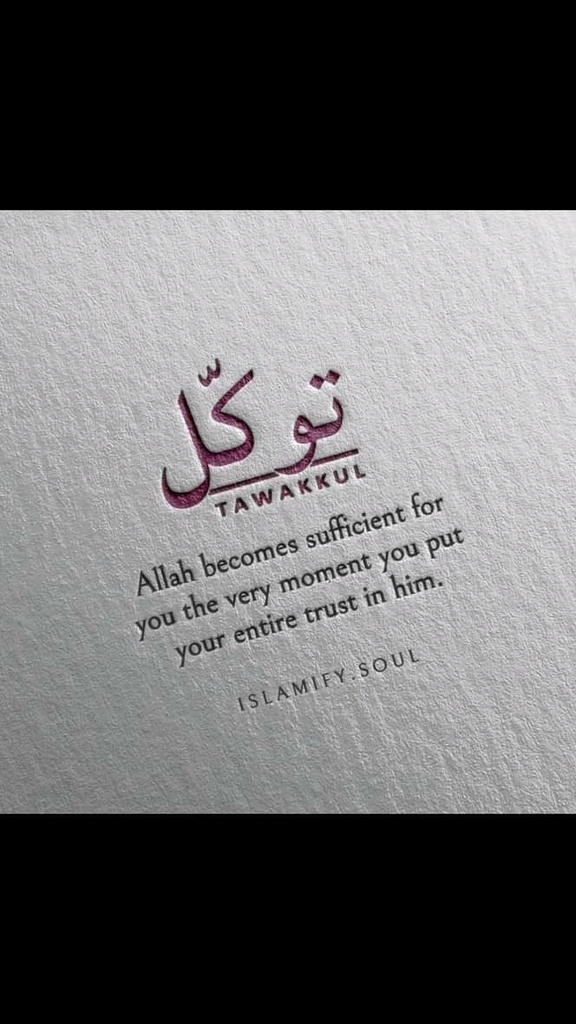 توكّل
TAWAKKUL
Allah becomes sufficient for
you the very moment you put
your entire trust in him.
ISLAMIFY.SOUL